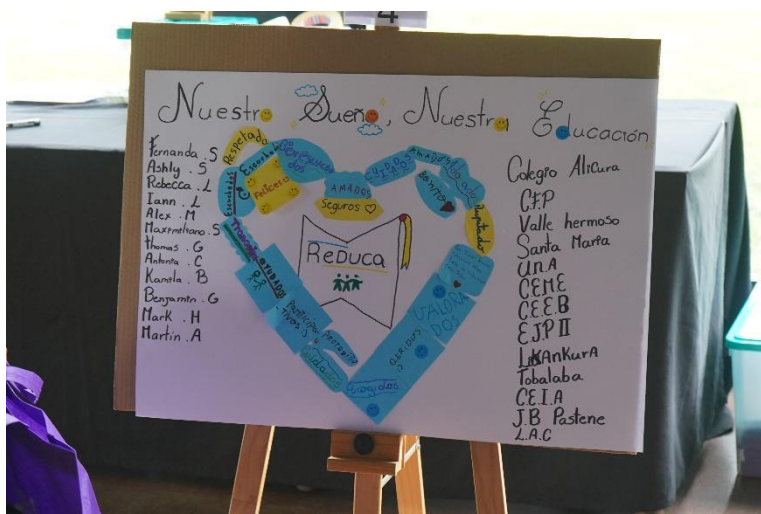 4
Nuestro Sueño, Nuestra Educación
Fernanda . S
Ashly . S
Rebecca . L
Iann . L
Alex . M
Maximiliano . S
Thomas . G
Antonia . C
Kamila . B
Benjamin . G
Mark . H
Martin . A
Respetado
Escuchado
Felices
AMADOS
Seguros
AMADOS
BONITO
REDUCA
AYUDADOS
VALORA
DOS
QERIDOS
Participa
tivos
Colegio Alicura
C.F.P
Valle hermoso
Santa María
U.N.A
CEME
C.E.E.B
E.J.P II
LikAnkurA
Tobalaba
C.E.I.A
J.B Pastene
L.A.C